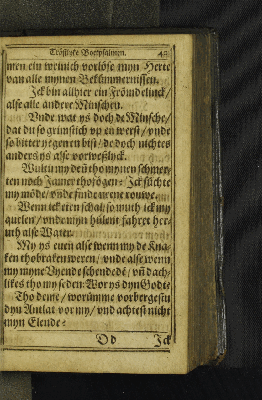 Tröstlyke Boetpsalmen. 48
men ein weinich vorlöse myn Herte
van alle mynen Bekümmernissen.
Ick bin allhier ein Frömdelinck/
alse alle andere Minschen.
Vnde wat ys doch de Minsche/
dat du so grimstich vp en werst/ vnde
so bitter yegen en bist/ de doch nichtes
anders ys alse
Wultu my den tho mynen schmer-
ten noch Jamer thovögen: Ick süchte
my möde/ vnde finde nene rouwe.
Wenn ick eten schal/ so muth ick my
quelen/ vnde myn hülent fahret her-
uth alse Water.
My ys euen alse wenn my de Kna-
ken thobraken weren/ vnde alse wenn
my myne Vyende schendede/ vñ dach-
likes tho my seden: Wor ys dyn Godt:
Tho deme/ worümme vorbergestu
dyn Antlat vor my/ vnd achtest nicht
myn Elende:
D d Ick